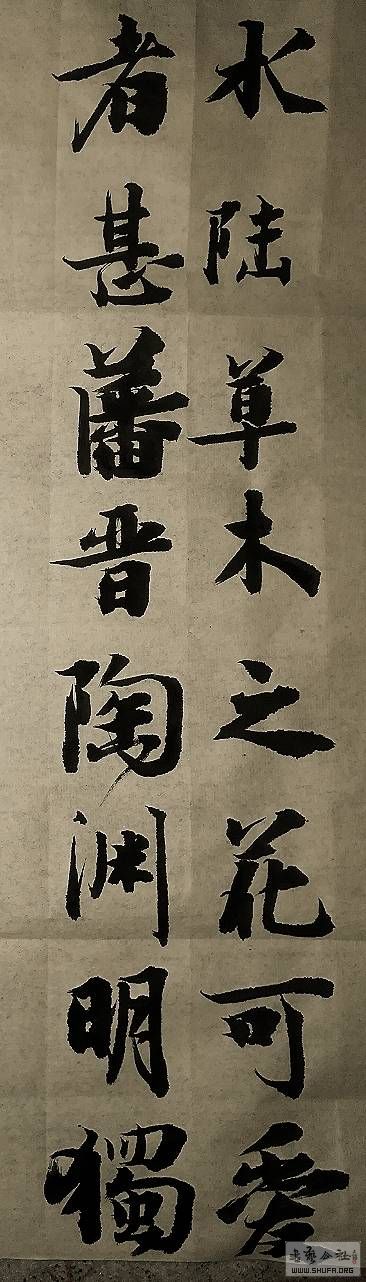 水陸草木之花可愛
者甚藩晋陶渊明獨
书艺公社
WWW.SHUFA.ORG